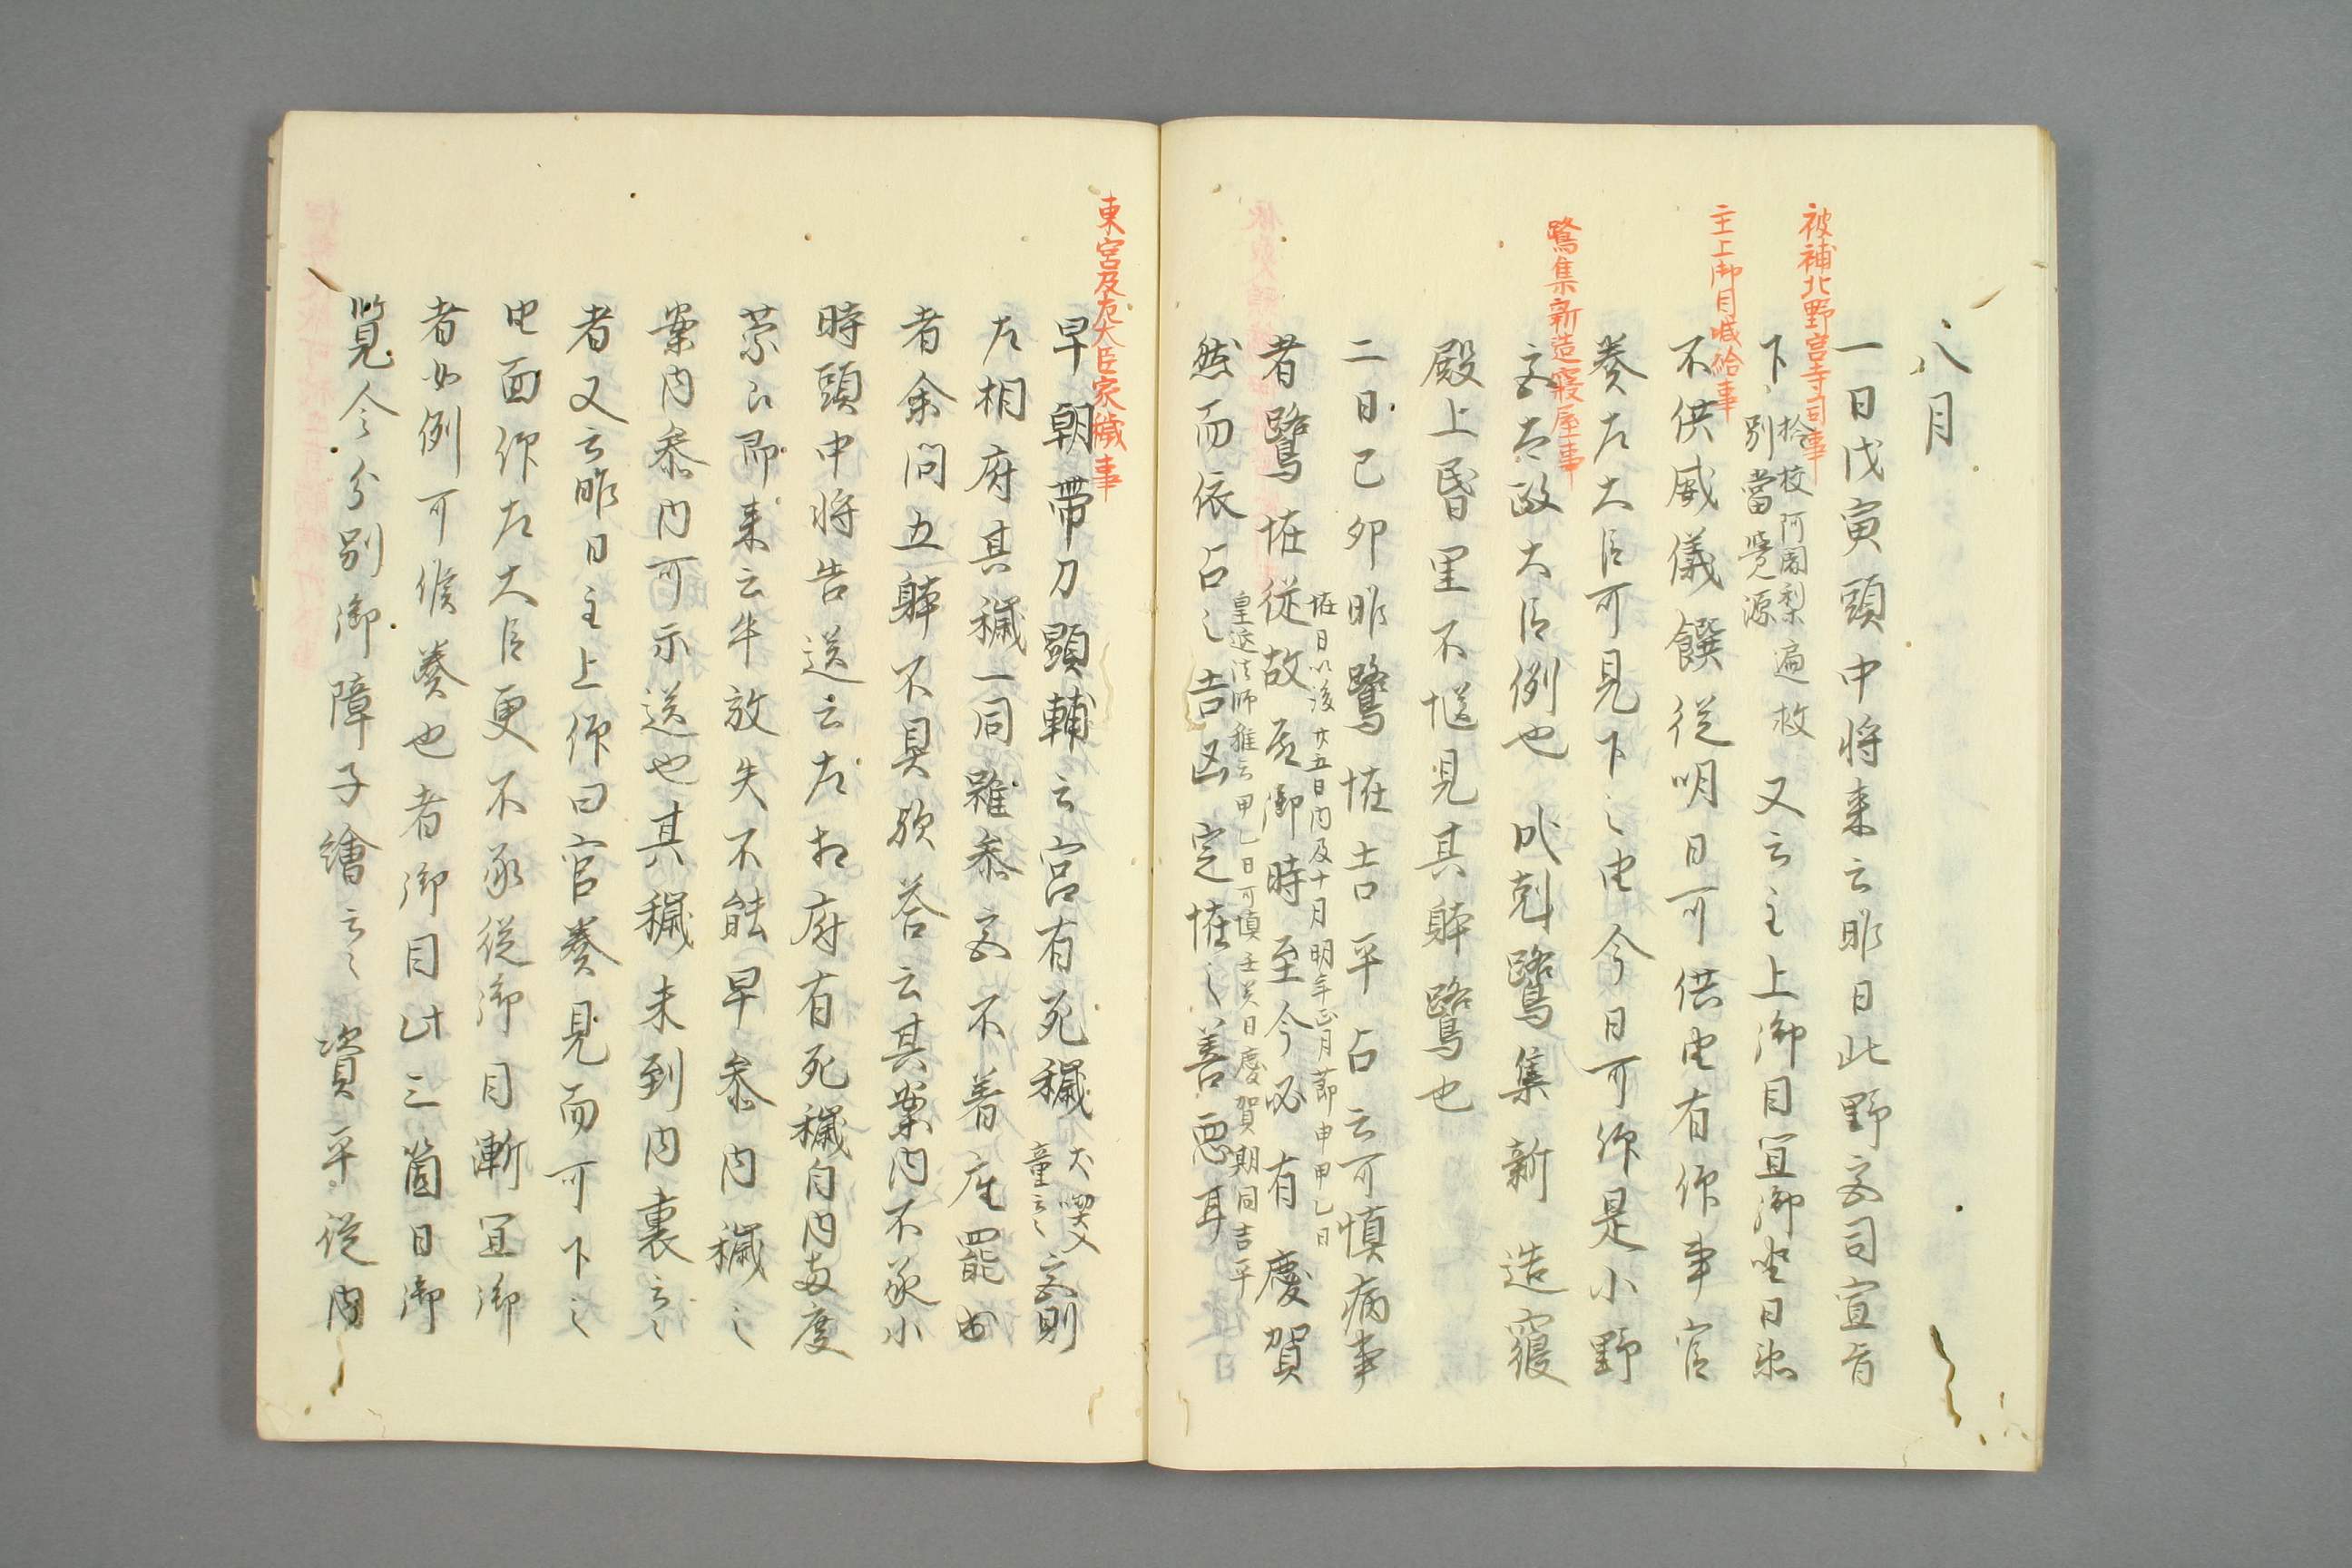 八月
被補北野宮寺司事
一日戊寅頭中将来云昨日北野宮司宣旨
下、検校阿闍梨遍救
別當覺源
又云主上御目宜御坐日然
主上御目喊給事
不供威儀饌従明日可供由有仰事官
奏左大臣可見下之由今日可仰是小野
鷺集新造寝屋事
宮太政大臣例也
戌剋鷺集新造寝
殿上昏黒不慥見其躰鷺也
二日己卯昨鷺恠吉平占云可慎病事
恠日以後廿五日内及十月明年正月節中甲乙日
皇延法師推云甲乙日可慎壬癸日慶賀期同吉平
者鷺恠従故殿御時至今必有慶賀
然而依占之吉凶定恠之善悪耳
東宮及左大臣家穢事
早朝帯刀顕輔云宮有死穢
犬喫入
童云々
宮則
左相府其穢一同雖参宮不着座罷出
者余問五躰不具欤答云其案内不承小
時頭中将告送云左相府有死穢自内両度
蒙召即来云牛放失不能早参内穢之
案内参内可示送也其穢未到内裏云々
者又云昨日主上仰曰官奏見而可下之
由面仰左大臣更不承従御目漸宜御
者如例可候奏也者御目此三箇日御
覧今分別御障子繪云々
資平従内